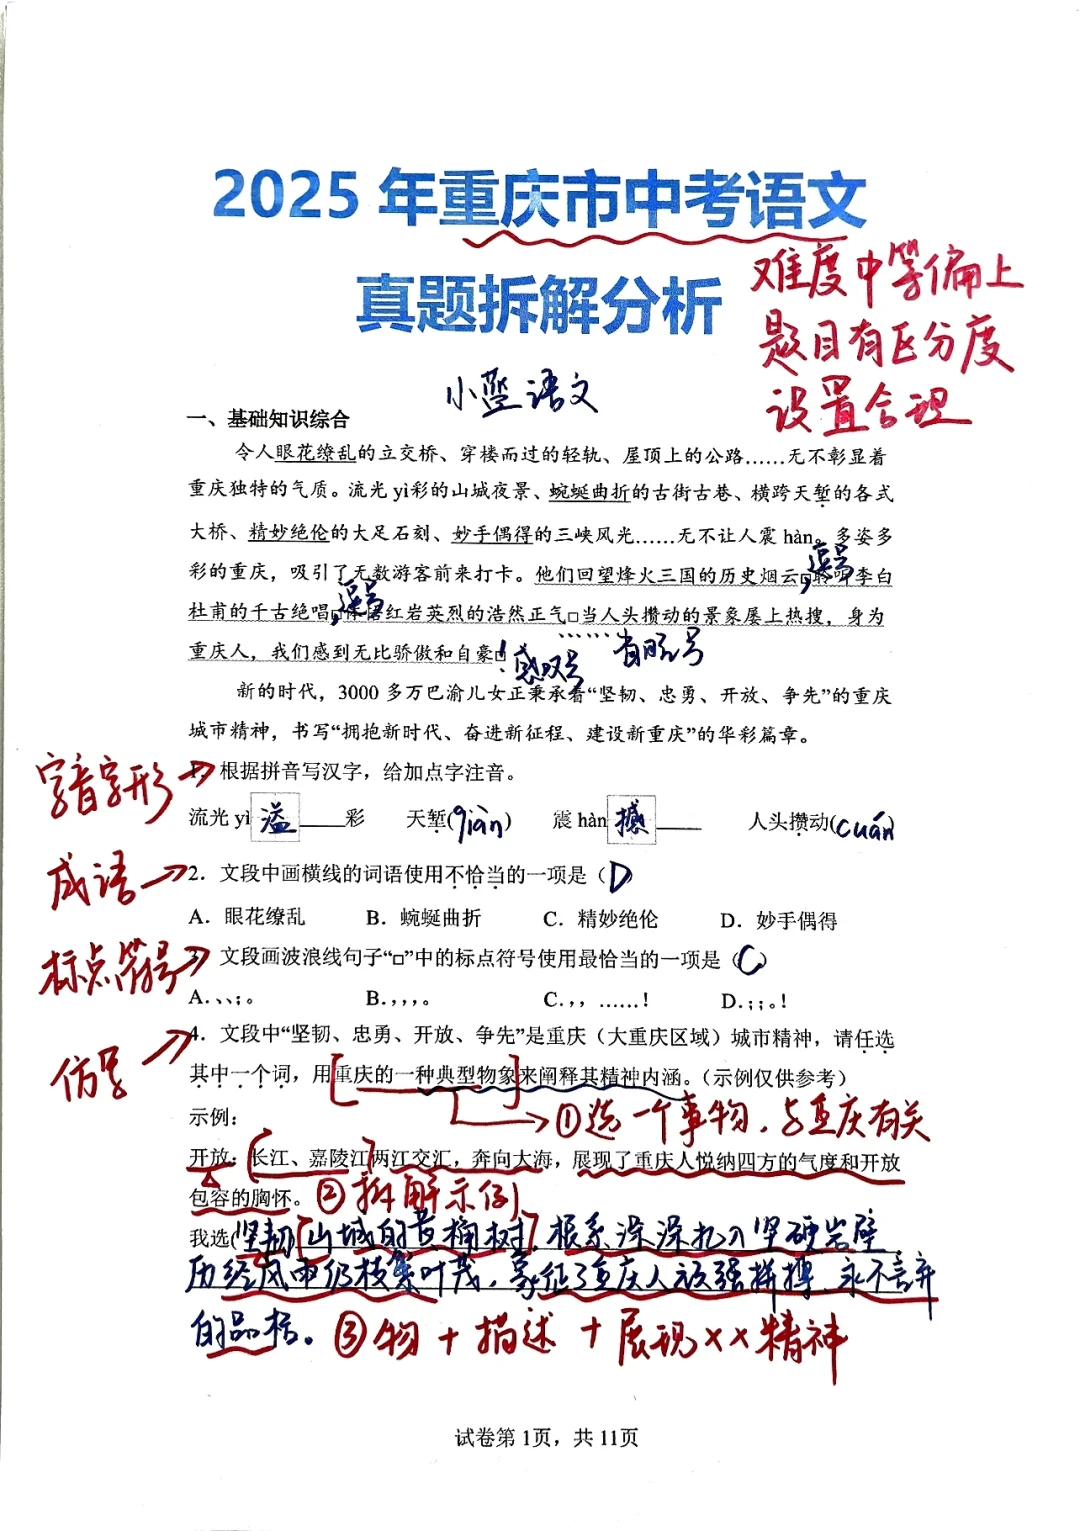 2025 年重庆市中考语文
真题拆解分析
难度中等偏上
题目有区分度
设置合理
小蛩语文
一、基础知识综合
令人眼花缭乱的立交桥、穿楼而过的轻轨、屋顶上的公路……无不彰显着
重庆独特的气质。流光 yì彩的山城夜景、蜿蜒曲折的古街古巷、横跨天堑的各式
大桥、精妙绝伦的大足石刻、妙手偶得的三峡风光……无不让人震 hàn。多姿多
彩的重庆，吸引了无数游客前来打卡。他们回望烽火三国的历史烟云□聆听李白
，逗号
杜甫的千古绝唱□体悟红岩英烈的浩然正气□当人头攒动的景象屡上热搜，身为
，逗号
……省略号
重庆人，我们感到无比骄傲和自豪□
！感叹号
新的时代，3000 多万巴渝儿女正秉承着“坚韧、忠勇、开放、争先”的重庆
城市精神，书写“拥抱新时代、奋进新征程、建设新重庆”的华彩篇章。
字音字形
1．根据拼音写汉字，给加点字注音。
流光 yì 溢 彩 天堑(qiàn) 震 hàn 撼 人头攒动(cuán)
成语
2．文段中画横线的词语使用不恰当的一项是（D）
A．眼花缭乱 B．蜿蜒曲折 C．精妙绝伦 D．妙手偶得
标点符号
3．文段画波浪线句子“□”中的标点符号使用最恰当的一项是（C）
A．、、；。 B．，，，。 C．，，……！ D．；；。！
仿写
4．文段中“坚韧、忠勇、开放、争先”是重庆（大重庆区域）城市精神，请任选
其中一个词，用重庆的一种典型物象来阐释其精神内涵。（示例仅供参考）
①选一个事物，与重庆有关
示例：
开放：长江、嘉陵江两江交汇，奔向大海，展现了重庆人悦纳四方的气度和开放
包容的胸怀。
②拆解示例
我选(坚韧)山城的黄桷树，根系深深扎入坚硬岩壁
历经风雨仍枝繁叶茂，象征了重庆人顽强拼搏、永不言弃
的品格。
③物 + 描述 + 展现××精神
试卷第 1页，共 11页